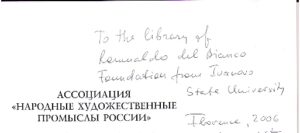 To the library of
Romualdo del Bianco
Foundation from Ivanovo
State University
АССОЦИАЦИЯ
«НАРОДНЫЕ ХУДОЖЕСТВЕННЫЕ
ПРОМЫСЛЫ РОССИИ»
Florence, 2006